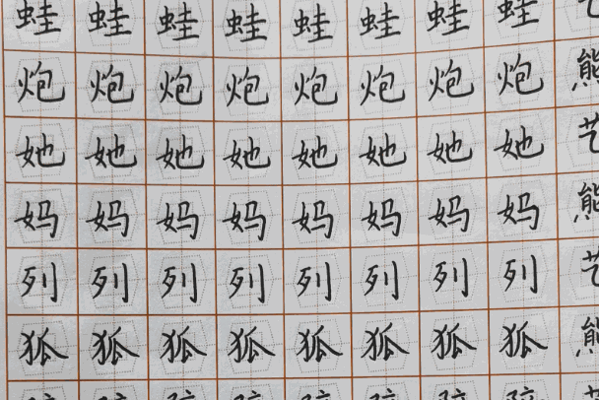 蛙 蛙 蛙 蛙 蛙 蛙 蛙 蛙
炮 炮 炮 炮 炮 炮 炮 炮 熊
她 她 她 她 她 她 她 她 艺
妈 妈 妈 妈 妈 妈 妈 妈 熊
列 列 列 列 列 列 列 列 艺
狐 狐 狐 狐 狐 狐 狐 狐 熊